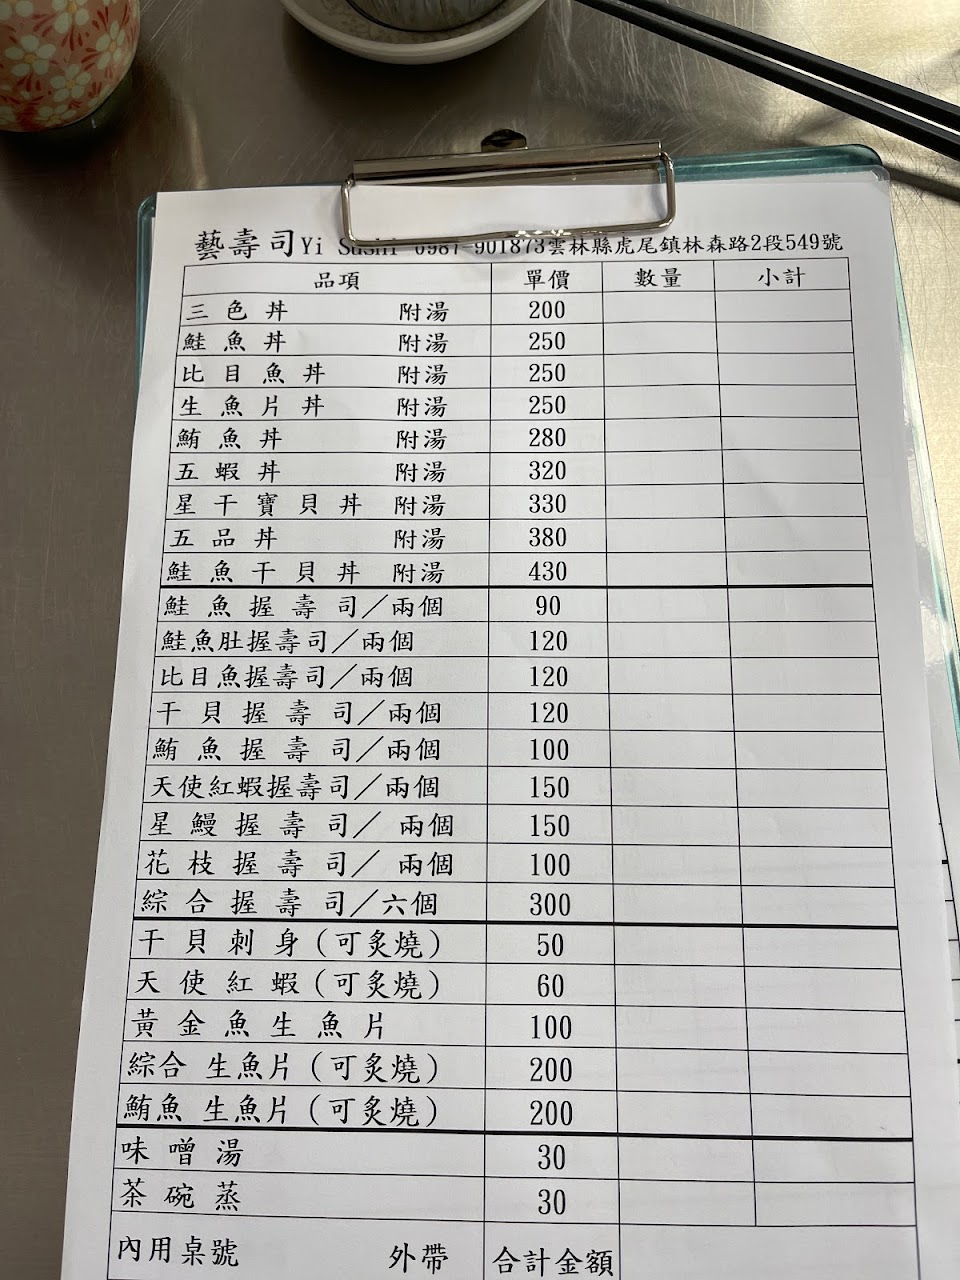 藝壽司Yi Sushi 0987-901873雲林縣虎尾鎮林森路2段549號
品項 單價 數量 小計
三色丼 附湯 200
鮭魚丼 附湯 250
比目魚丼 附湯 250
生魚片丼 附湯 250
鮪魚丼 附湯 280
五蝦丼 附湯 320
星干寶貝丼 附湯 330
五品丼 附湯 380
鮭魚干貝丼 附湯 430
鮭魚握壽司／兩個 90
鮭魚肚握壽司／兩個 120
比目魚握壽司／兩個 120
干貝握壽司／兩個 120
鮪魚握壽司／兩個 100
天使紅蝦握壽司／兩個 150
星鰻握壽司／兩個 150
花枝握壽司／兩個 100
綜合握壽司／六個 300
干貝刺身(可炙燒) 50
天使紅蝦(可炙燒) 60
黃金魚生魚片 100
綜合 生魚片(可炙燒) 200
鮪魚 生魚片(可炙燒) 200
味噌湯 30
茶碗蒸 30
內用桌號 外帶 合計金額